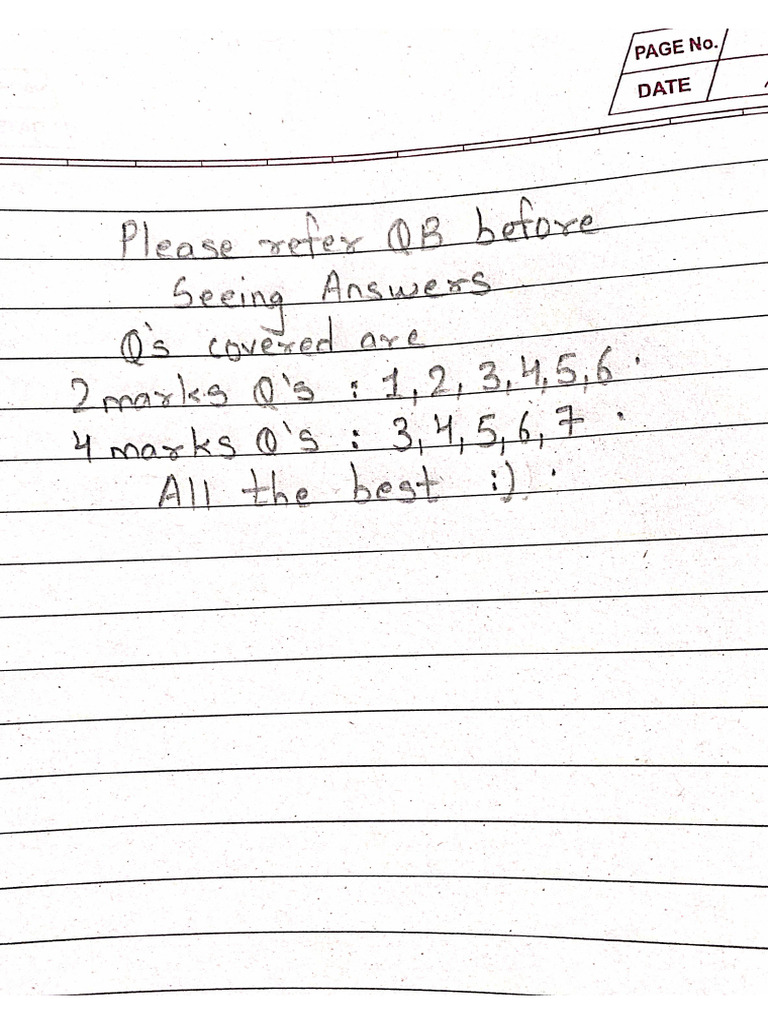 PAGE No.
DATE
Please refer QB before
Seeing Answers
Q's covered are
2 marks Q's : 1, 2, 3, 4, 5, 6 .
4 marks Q's : 3, 4, 5, 6, 7 .
All the best :) .